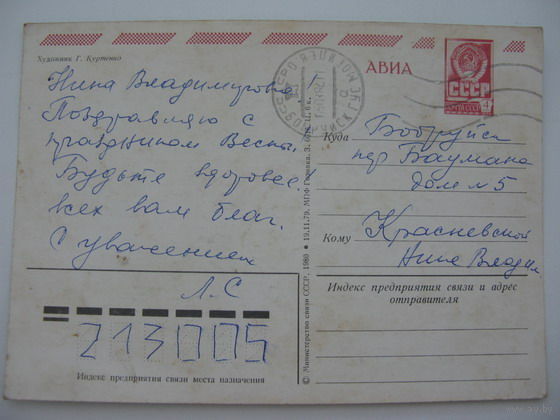 Художник Г. Куртенко
АВИА
СССР
ПОЧТА СССР
4
Нина Владимировна
Поздравляю с
праздником Весны.
Будьте здоровы!
всех вам благ.
С уважением
Л.С
213005
Индекс предприятия связи места назначения
© Министерство связи СССР, 1980 ● 19.11.79.
Куда
Бобруйск
пер Баумана
дом № 5
Кому
Красневской
Нине Владим.
Индекс предприятия связи и адрес
отправителя